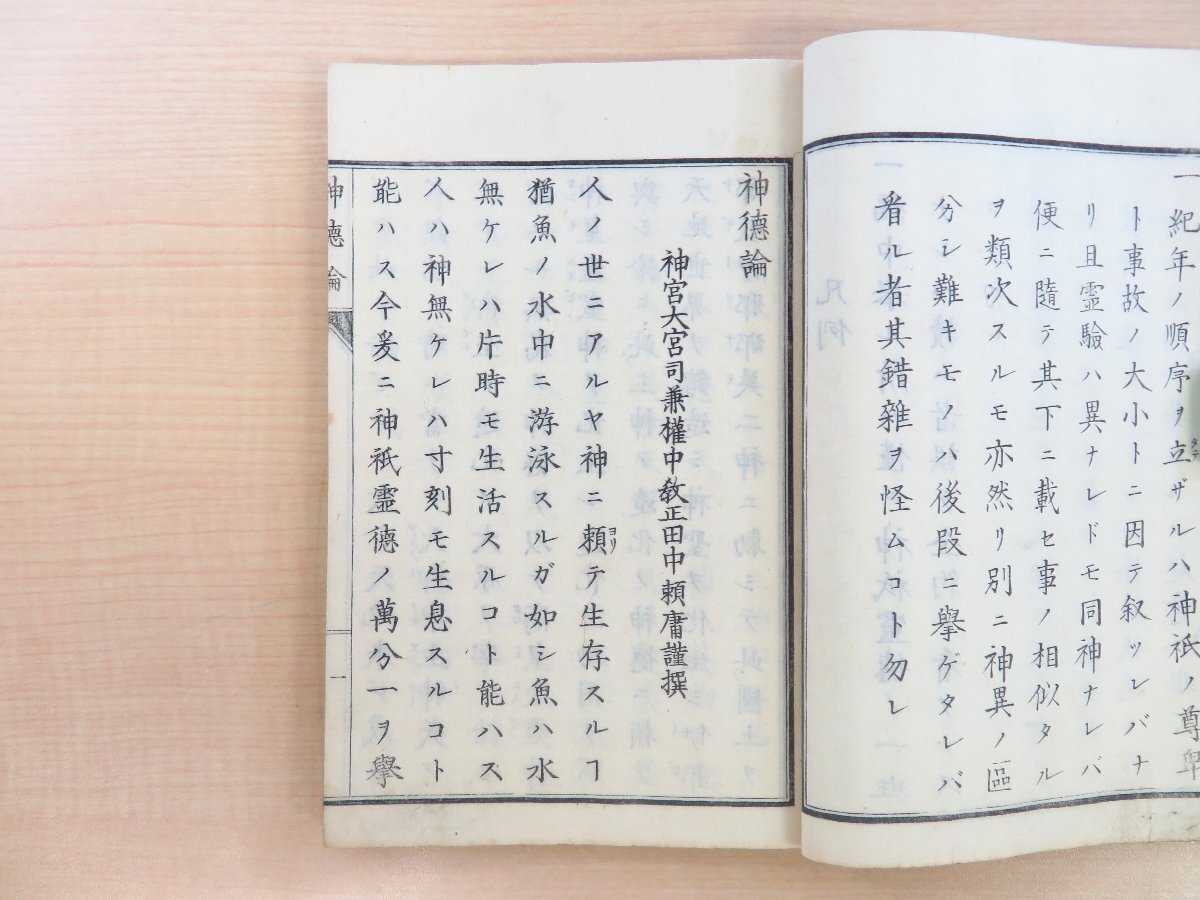 一紀年ノ順序ヲ立ザルハ神祇ノ尊卑
ト事故ノ大小トニ因テ叙ツレバナ
リ且霊驗ハ異ナレドモ同神ナレバ
便ニ隨テ其下ニ載セ事ノ相似タル
ヲ類次スルモ亦然リ別ニ神異ノ區
分シ難キモノハ後段ニ擧ゲタレバ
看ル者其錯雜ヲ怪ムコト勿レ
神德論
神宮大宮司兼權中教正田中頼庸謹撰
人ノ世ニアルヤ神ニ頼テ生存スルヿ
ヨリ
猶魚ノ水中ニ游泳スルガ如シ魚ハ水
無ケレハ片時モ生活スルコト能ハス
人ハ神無ケレハ寸刻モ生息スルコト
能ハス今爰ニ神祇靈德ノ萬分一ヲ擧
神德論
一